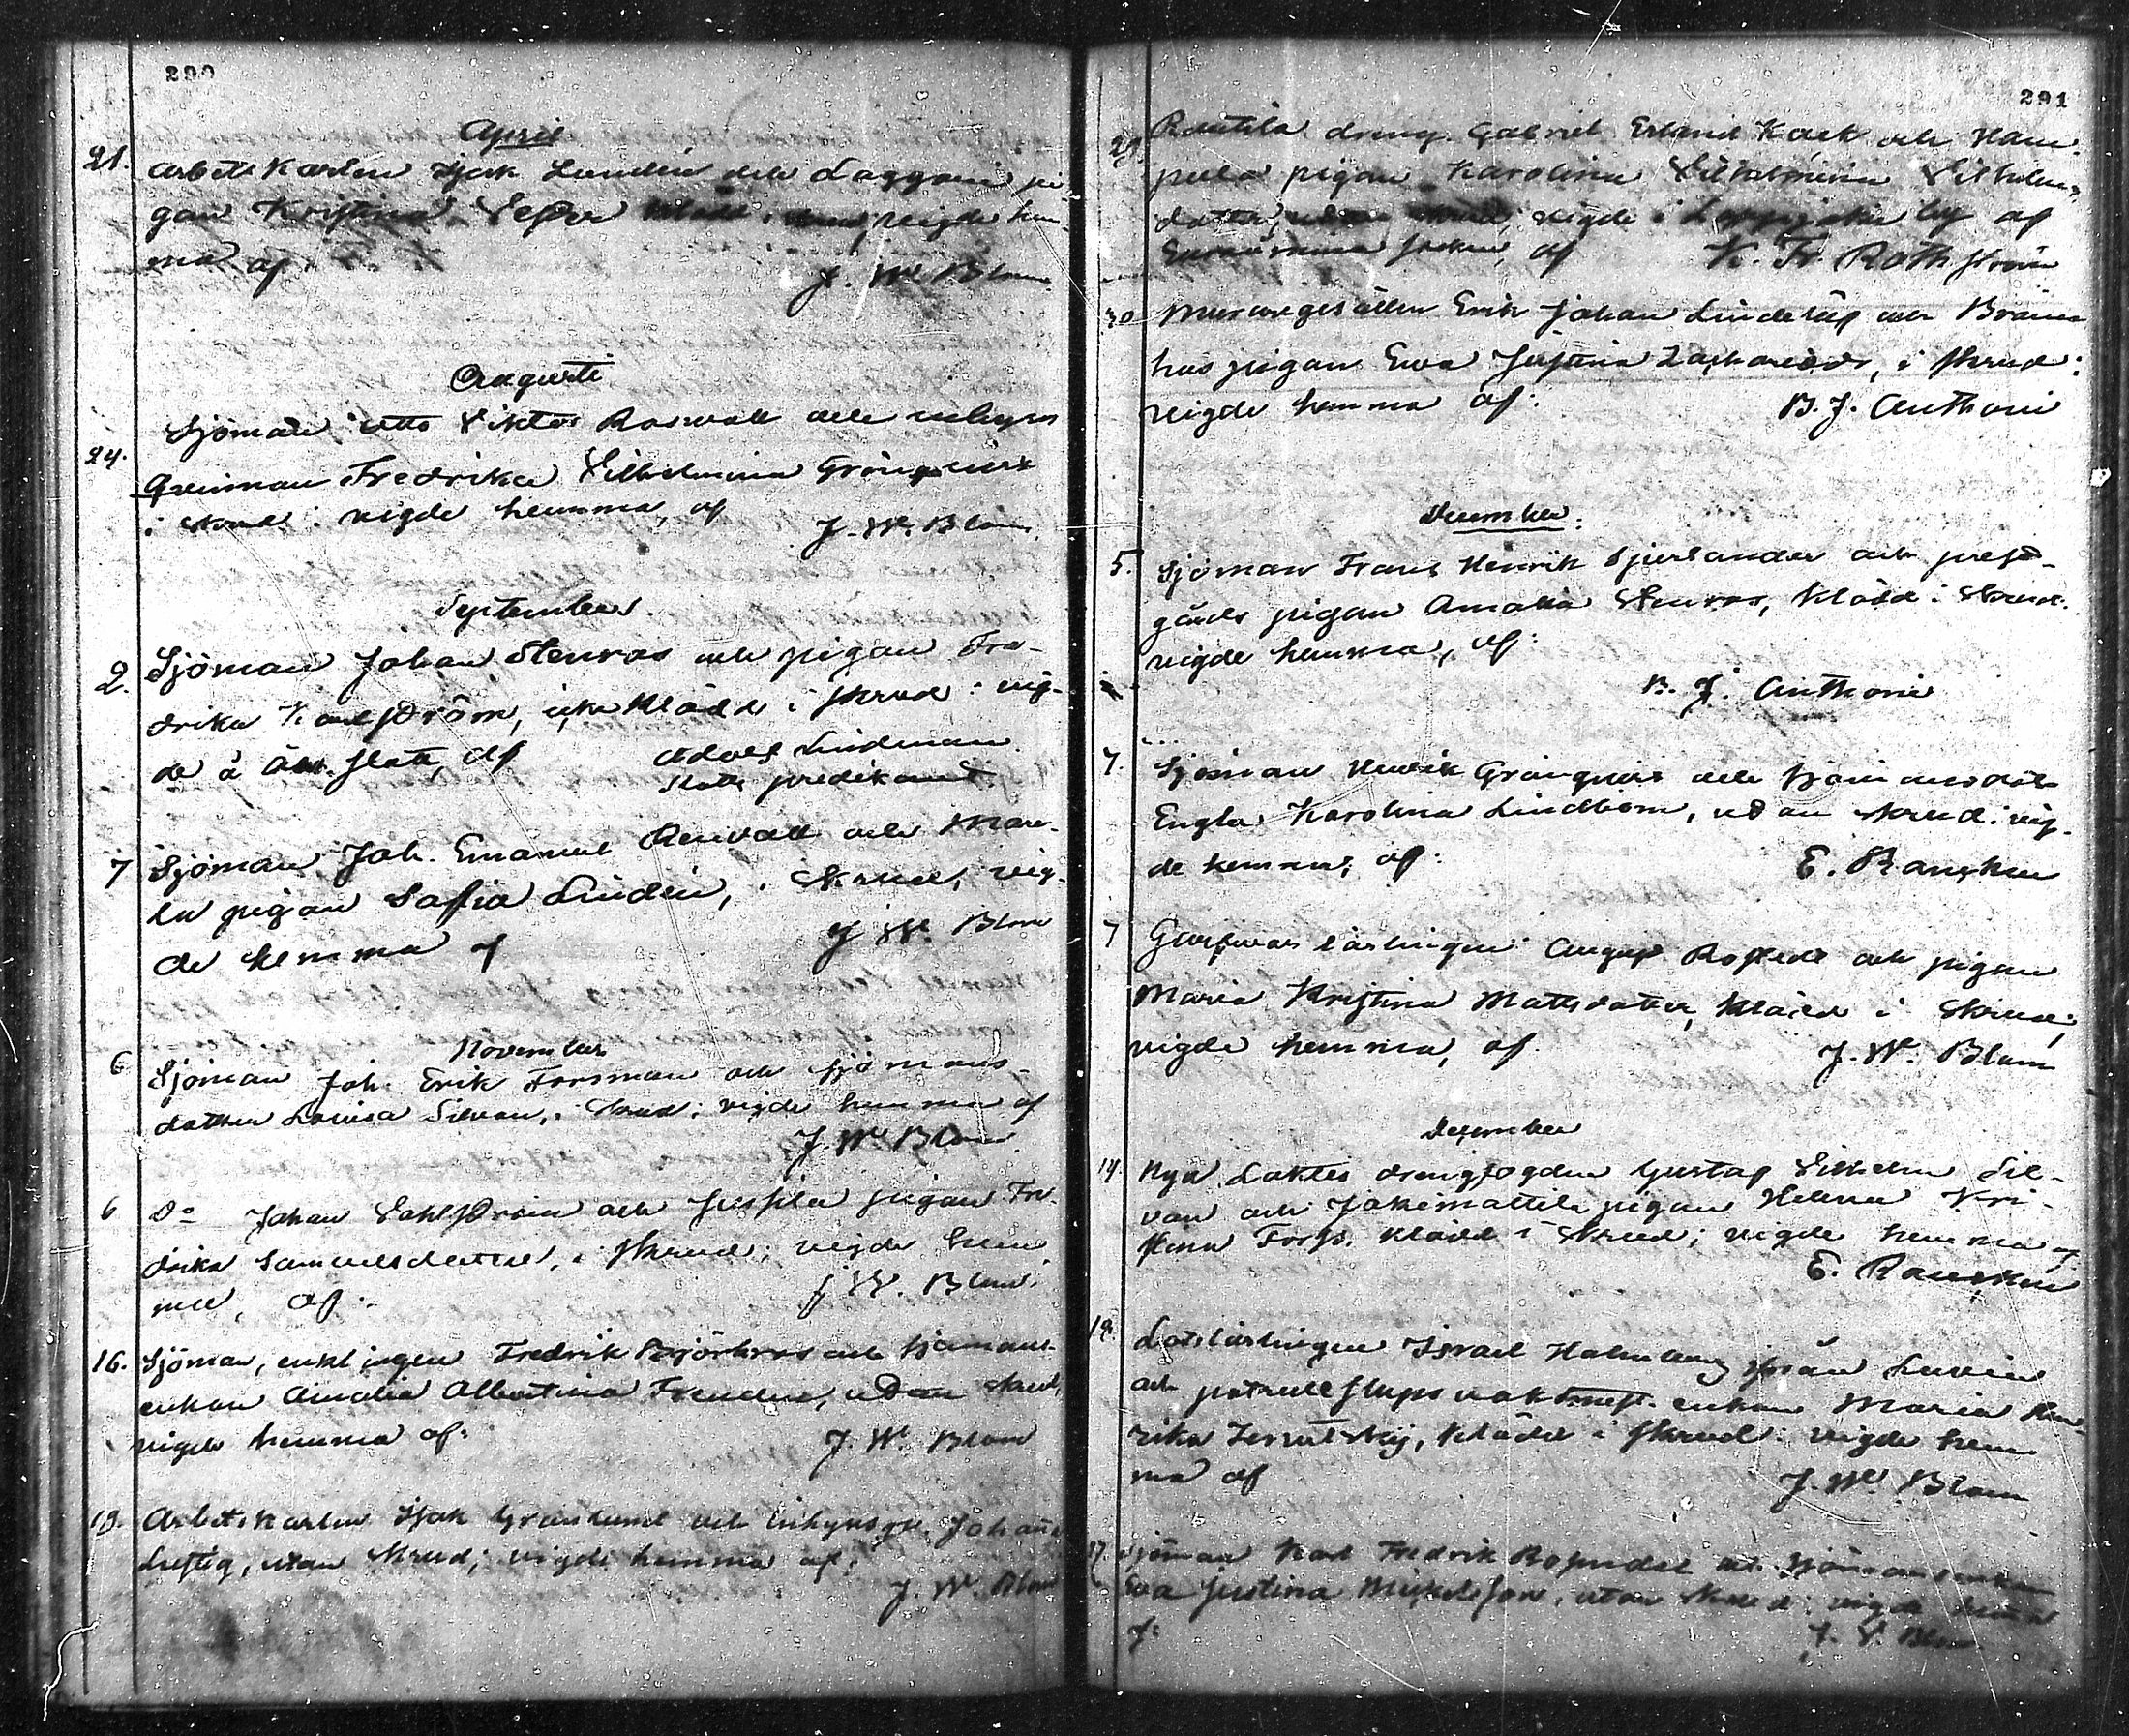 290
April
21. Arbetskarlen Isak Lundén och Laggari pi-
gan Kristina Vigde hem
ma af J. W. Blom
Augusti
Sjöman Otto Viktor Rosvall och inhyses
24. qvinnan Fredrika Vilhelmina Grönqvist
i skrud: vigde hemma, af J. W. Blom
September
2. Sjöman Johan Stenroos och pigan Fre-
drika Karlström, icke klädd i skrud: vig-
de å Åbo slott, af Adolf Lindman
Slotts predikant
7 Sjöman Joh. Emanuel Renvall och
pigan Sofia Lindén, i Skrud, vig-
de hemma af J W. Blom
November
6 Sjöman Joh. Erik Forsman och sjömans-
dottren Lovisa Silvan, i Skrud: vigde hemma af
J. W. Blom
6 Do Johan Vahlström och Jussila pigan Fre-
drika Samuelsdotter, i Skrud: vigde hem
ma, af: J W. Blom
16. Sjöman, enklingen Fredrik Björkroos och sjömans-
enkan Amalia Albertina, udan skrud,
vigde hemma af: J. W. Blom
18. Arbetskarlen Isak Grönlund och inhyses p. Johana
Luftig, utan skrud; vigde hemma af:
J. W. Blom
291
29. Rautila dreng Gabriel Erland Kock och
pigan Karolina Vilhelmina Vilhelms
dotter, vigde i by af
Euraåminne socken, af K. Fr. Rothström
30 Muraregesällen Erik Johan Lindelöf och
hus pigan Eva Justina i skrud:
vigde hemma af: B. J. Anthoni
December.
5. Sjöman Frans Henrik och prest-
gårds pigan Amalia Stenroos, klädd i Skrud.
vigde hemma, af:
B. J. Anthoni
7. Sjöman Henrik Grönqvist och sjömansdott
Engla Karolina Lindblom, udan skrud: vig-
de hemma, af: E. Rancken
7 Garfvars lärlingen August och pigan
Maria Kristina Mattsdotter, klädd i Skrud,
vigde hemma, af J. W. Blom
December
14. Nya Laktis drengfogden Gustaf Vilhelm Sil-
van och Jakimattila pigan Helena Kri-
stina Forss, klädd i Skrud; vigde hemma af
E. Rancken
19. Lotslärlingen Israel Holmberg från Luvia
och enkan Maria
rika klädd i skrud: vigde hem
ma af J. W. Blom
17. Sjöman Karl Fredrik och Sjömansenkan
Eva Justina Mickelsson, utan skrud: vigde hemma
af: J. W. Blom